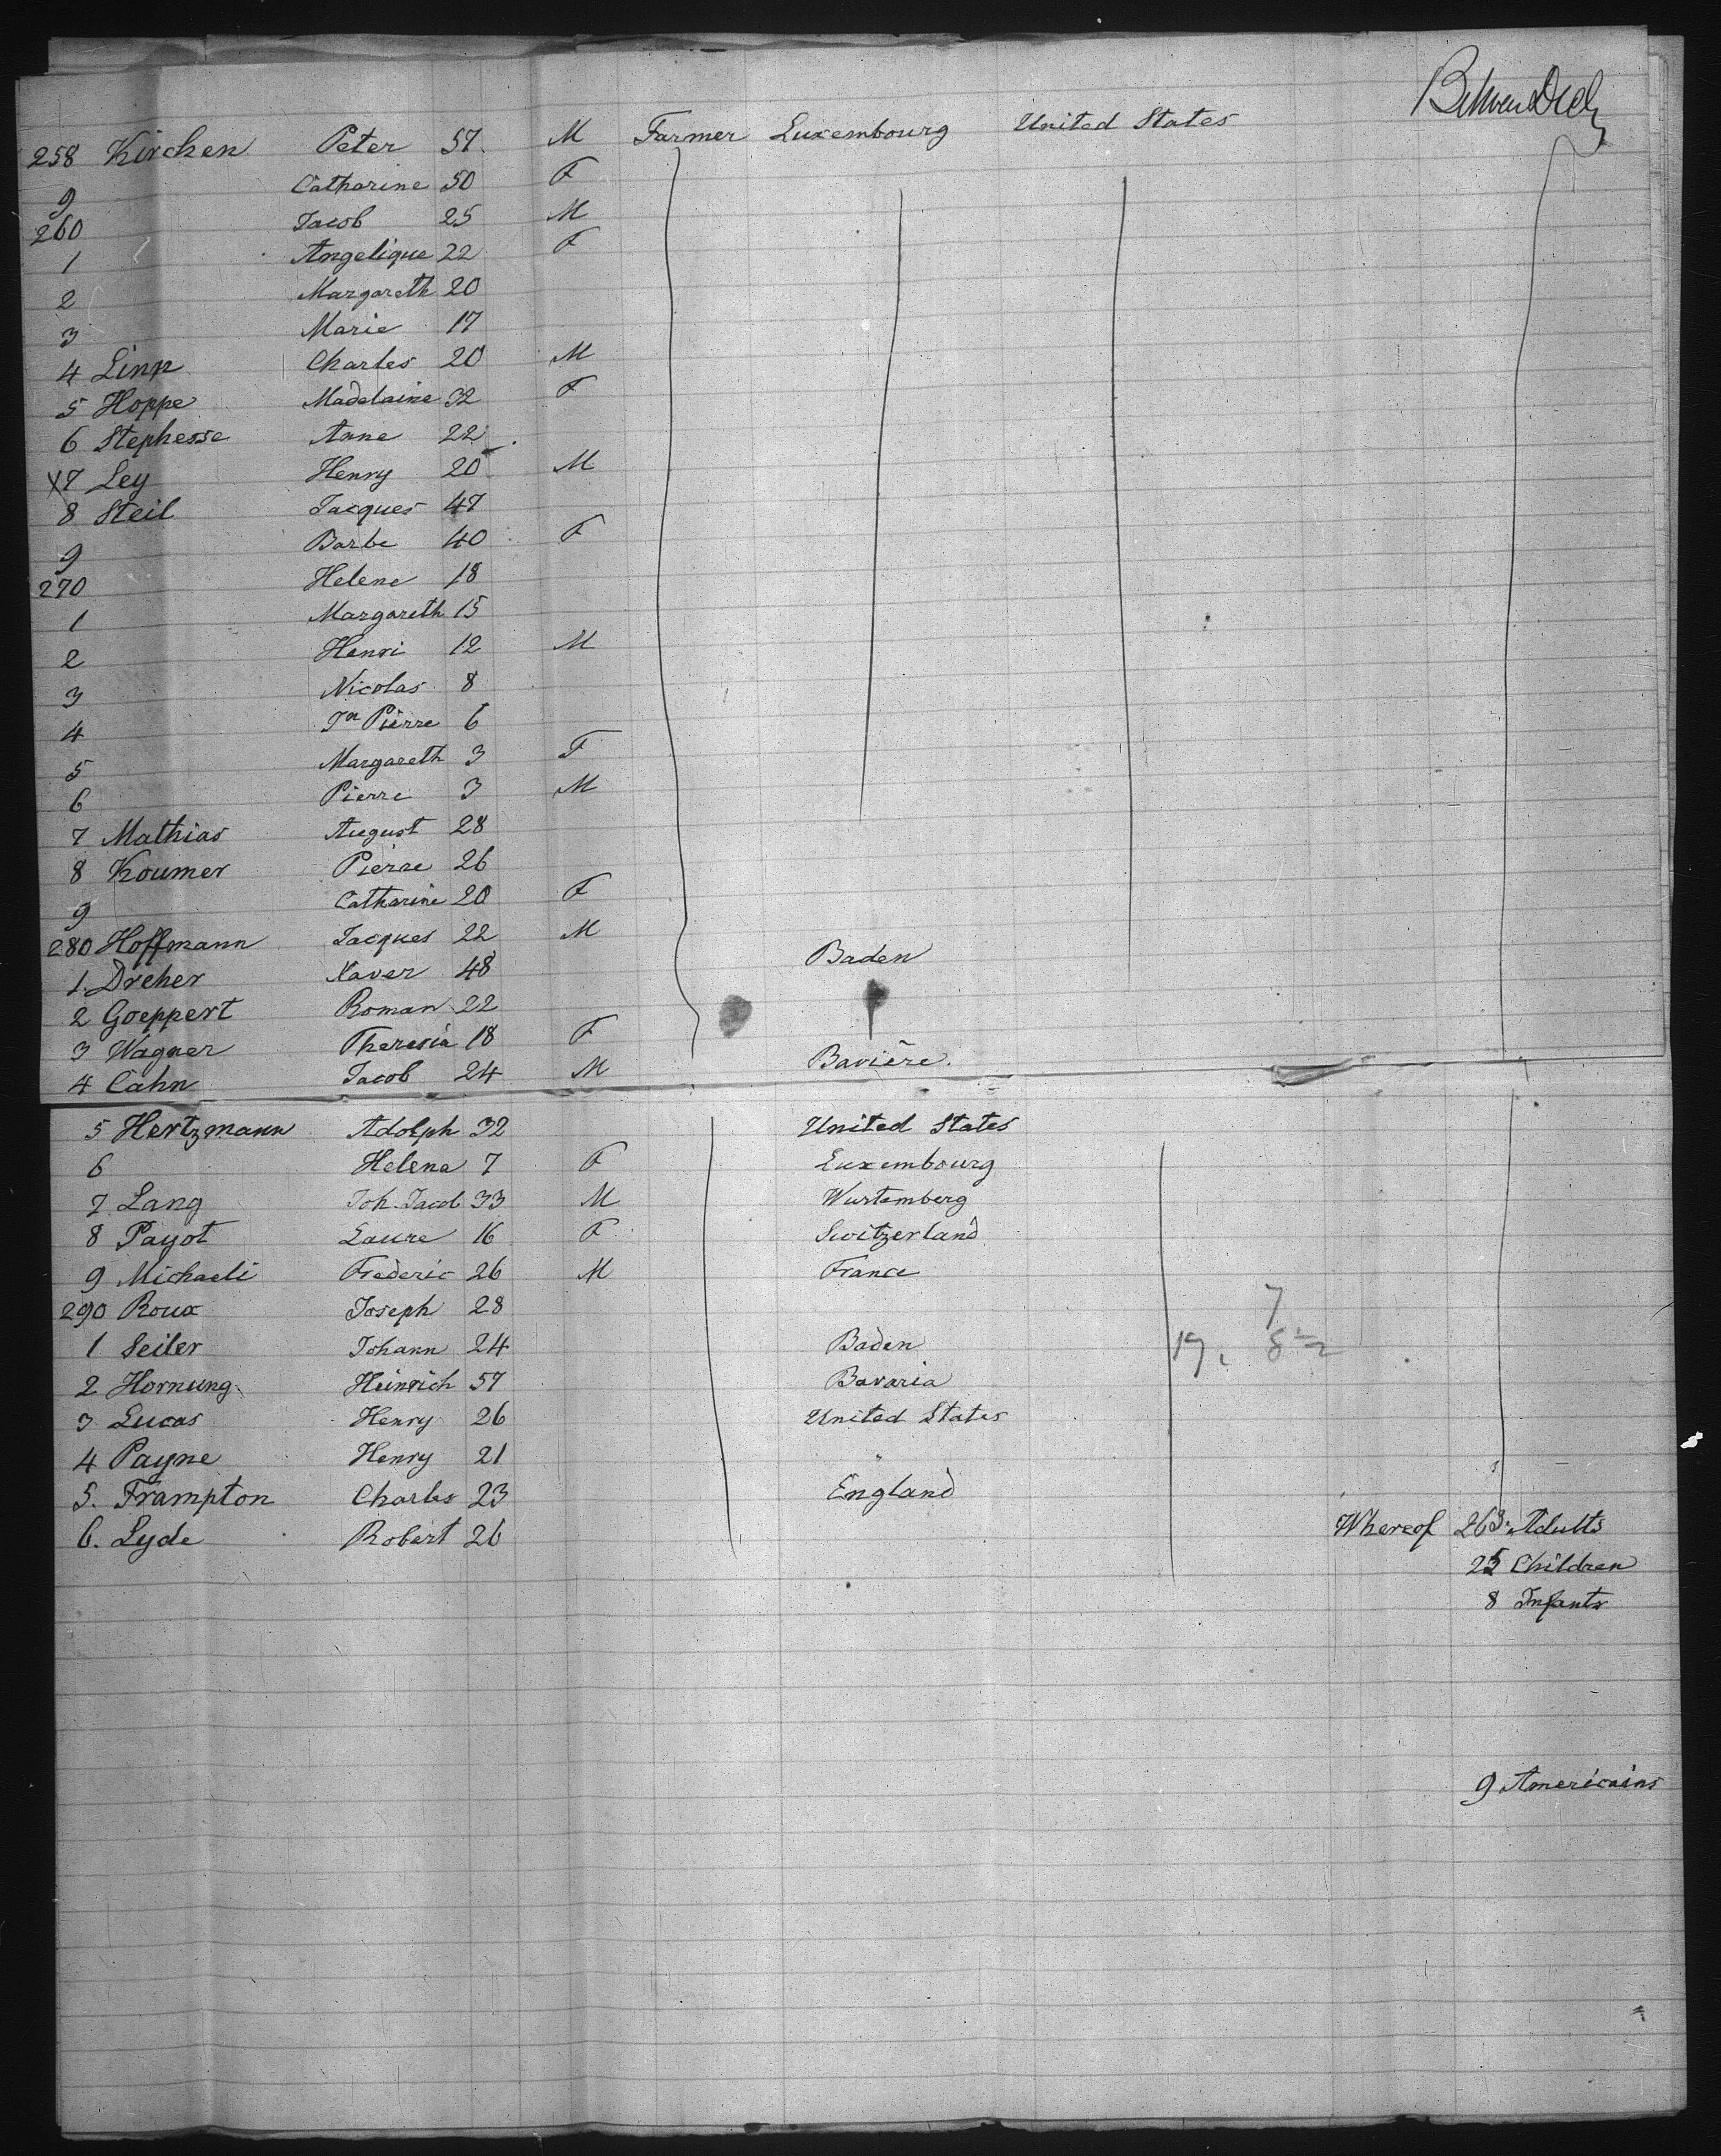 Between Deck
258 Kirchen Peter 57. M Farmer Luxembourg United States
9 Catharine 50 F
260 Jacob 25 M
1 Angelique 22 F
2 Margareth 20
3 Marie 17
4 Linn Charles 20 M
5 Hoppe Madelaine 32 F
6 Stephesse Anne 22
X7 Ley Henry 20 M
8 Steil Jacques 47
9 Barbe 40 F
270 Helene 18
1 Margareth 15
2 Henri 12 M
3 Nicolas 8
4 Jn Pierre 6
5 Margareth 3 F
6 Pierre 3 M
7 Mathias August 28
8 Koumer Pierre 26
9 Catharine 20 F
280 Hoffmann Jacques 22 M
1. Dreher Xaver 48 Baden
2 Goeppert Roman 22
3 Wagner Theresia 18 F
4 Cahn Jacob 24 M Bavière.
5 Hertzmann Adolph 32 United States
6 Helena 7 F Luxembourg
7 Lang Joh. Jacob 33 M Wurtemberg
8 Payot Laure 16 F Switzerland
9 Michaeli Frederic 26 M France
290 Roux Joseph 28
7
1 Seiler Johann 24 Baden 19.
2 Hornung Heinrich 57 Bavaria
3 Lucas Henry 26 United States
4 Payne Henry 21 "
5. Frampton Charles 23 England
6. Lyde Robert 26 Whereof 263 Adults
25 Children
8 Infants
9 Americains